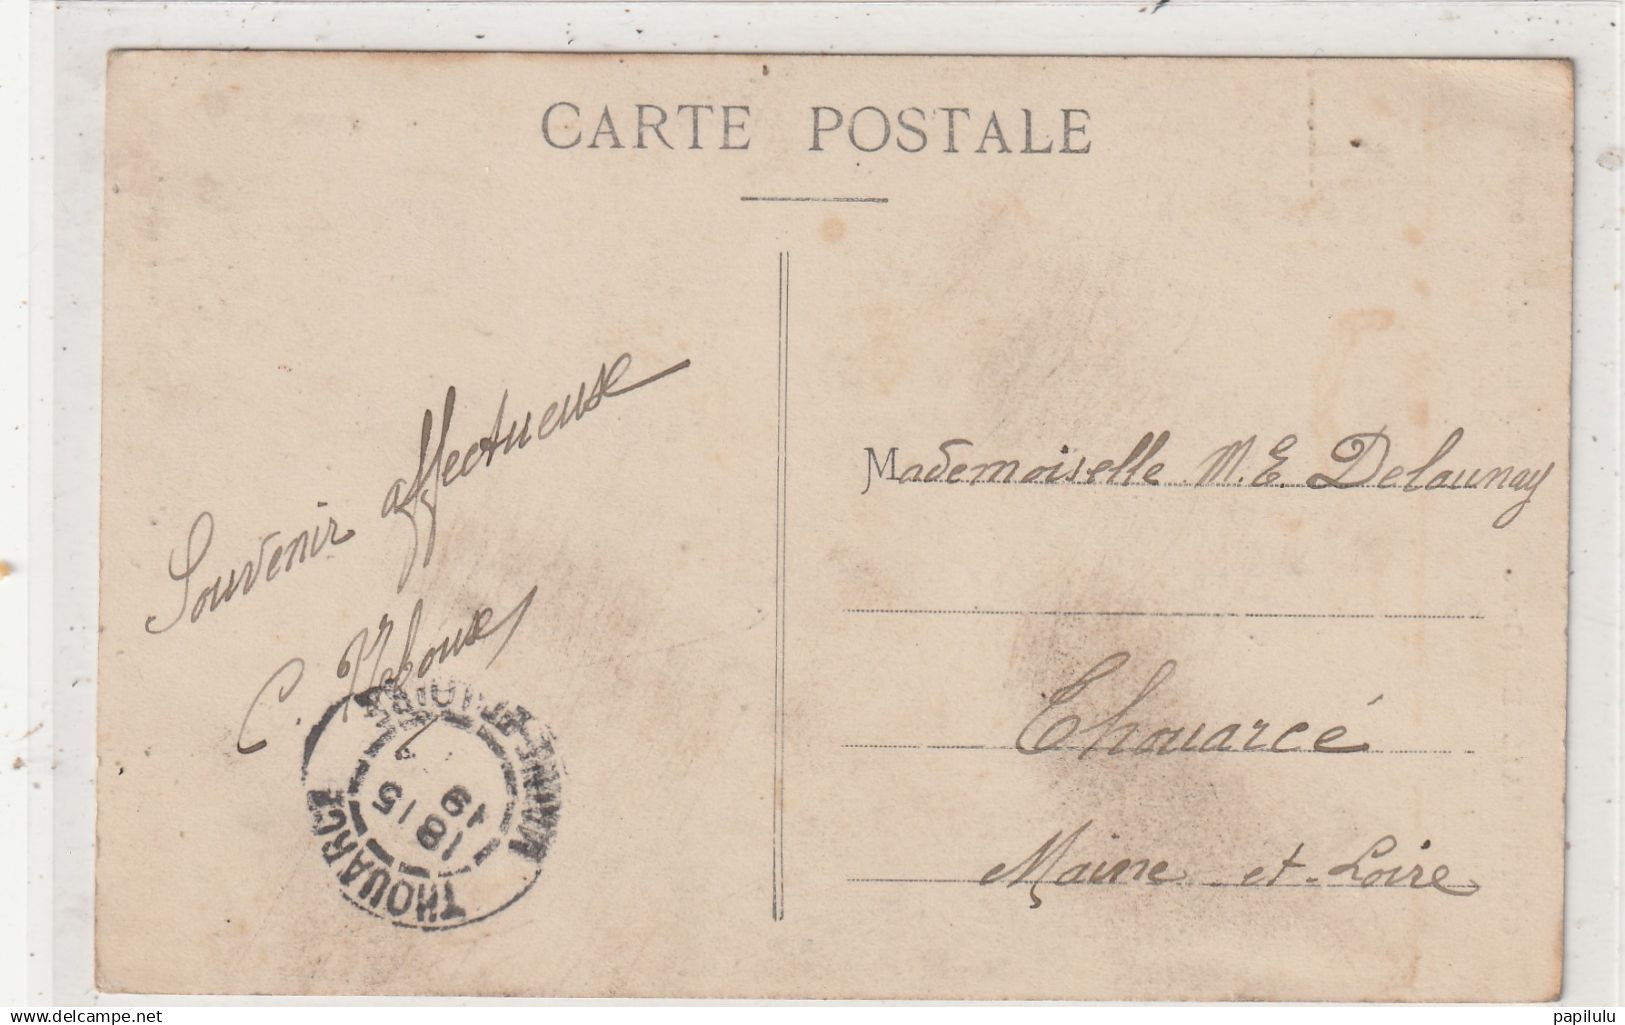 CARTE POSTALE
Souvenir affectueuse
C.
THOUARCÉ
MAINE-ET-LOIRE
18
15
19
Mademoiselle M.E. Delaunay
Thouarcé
Maine et Loire
www.delcampe.net
papilulu